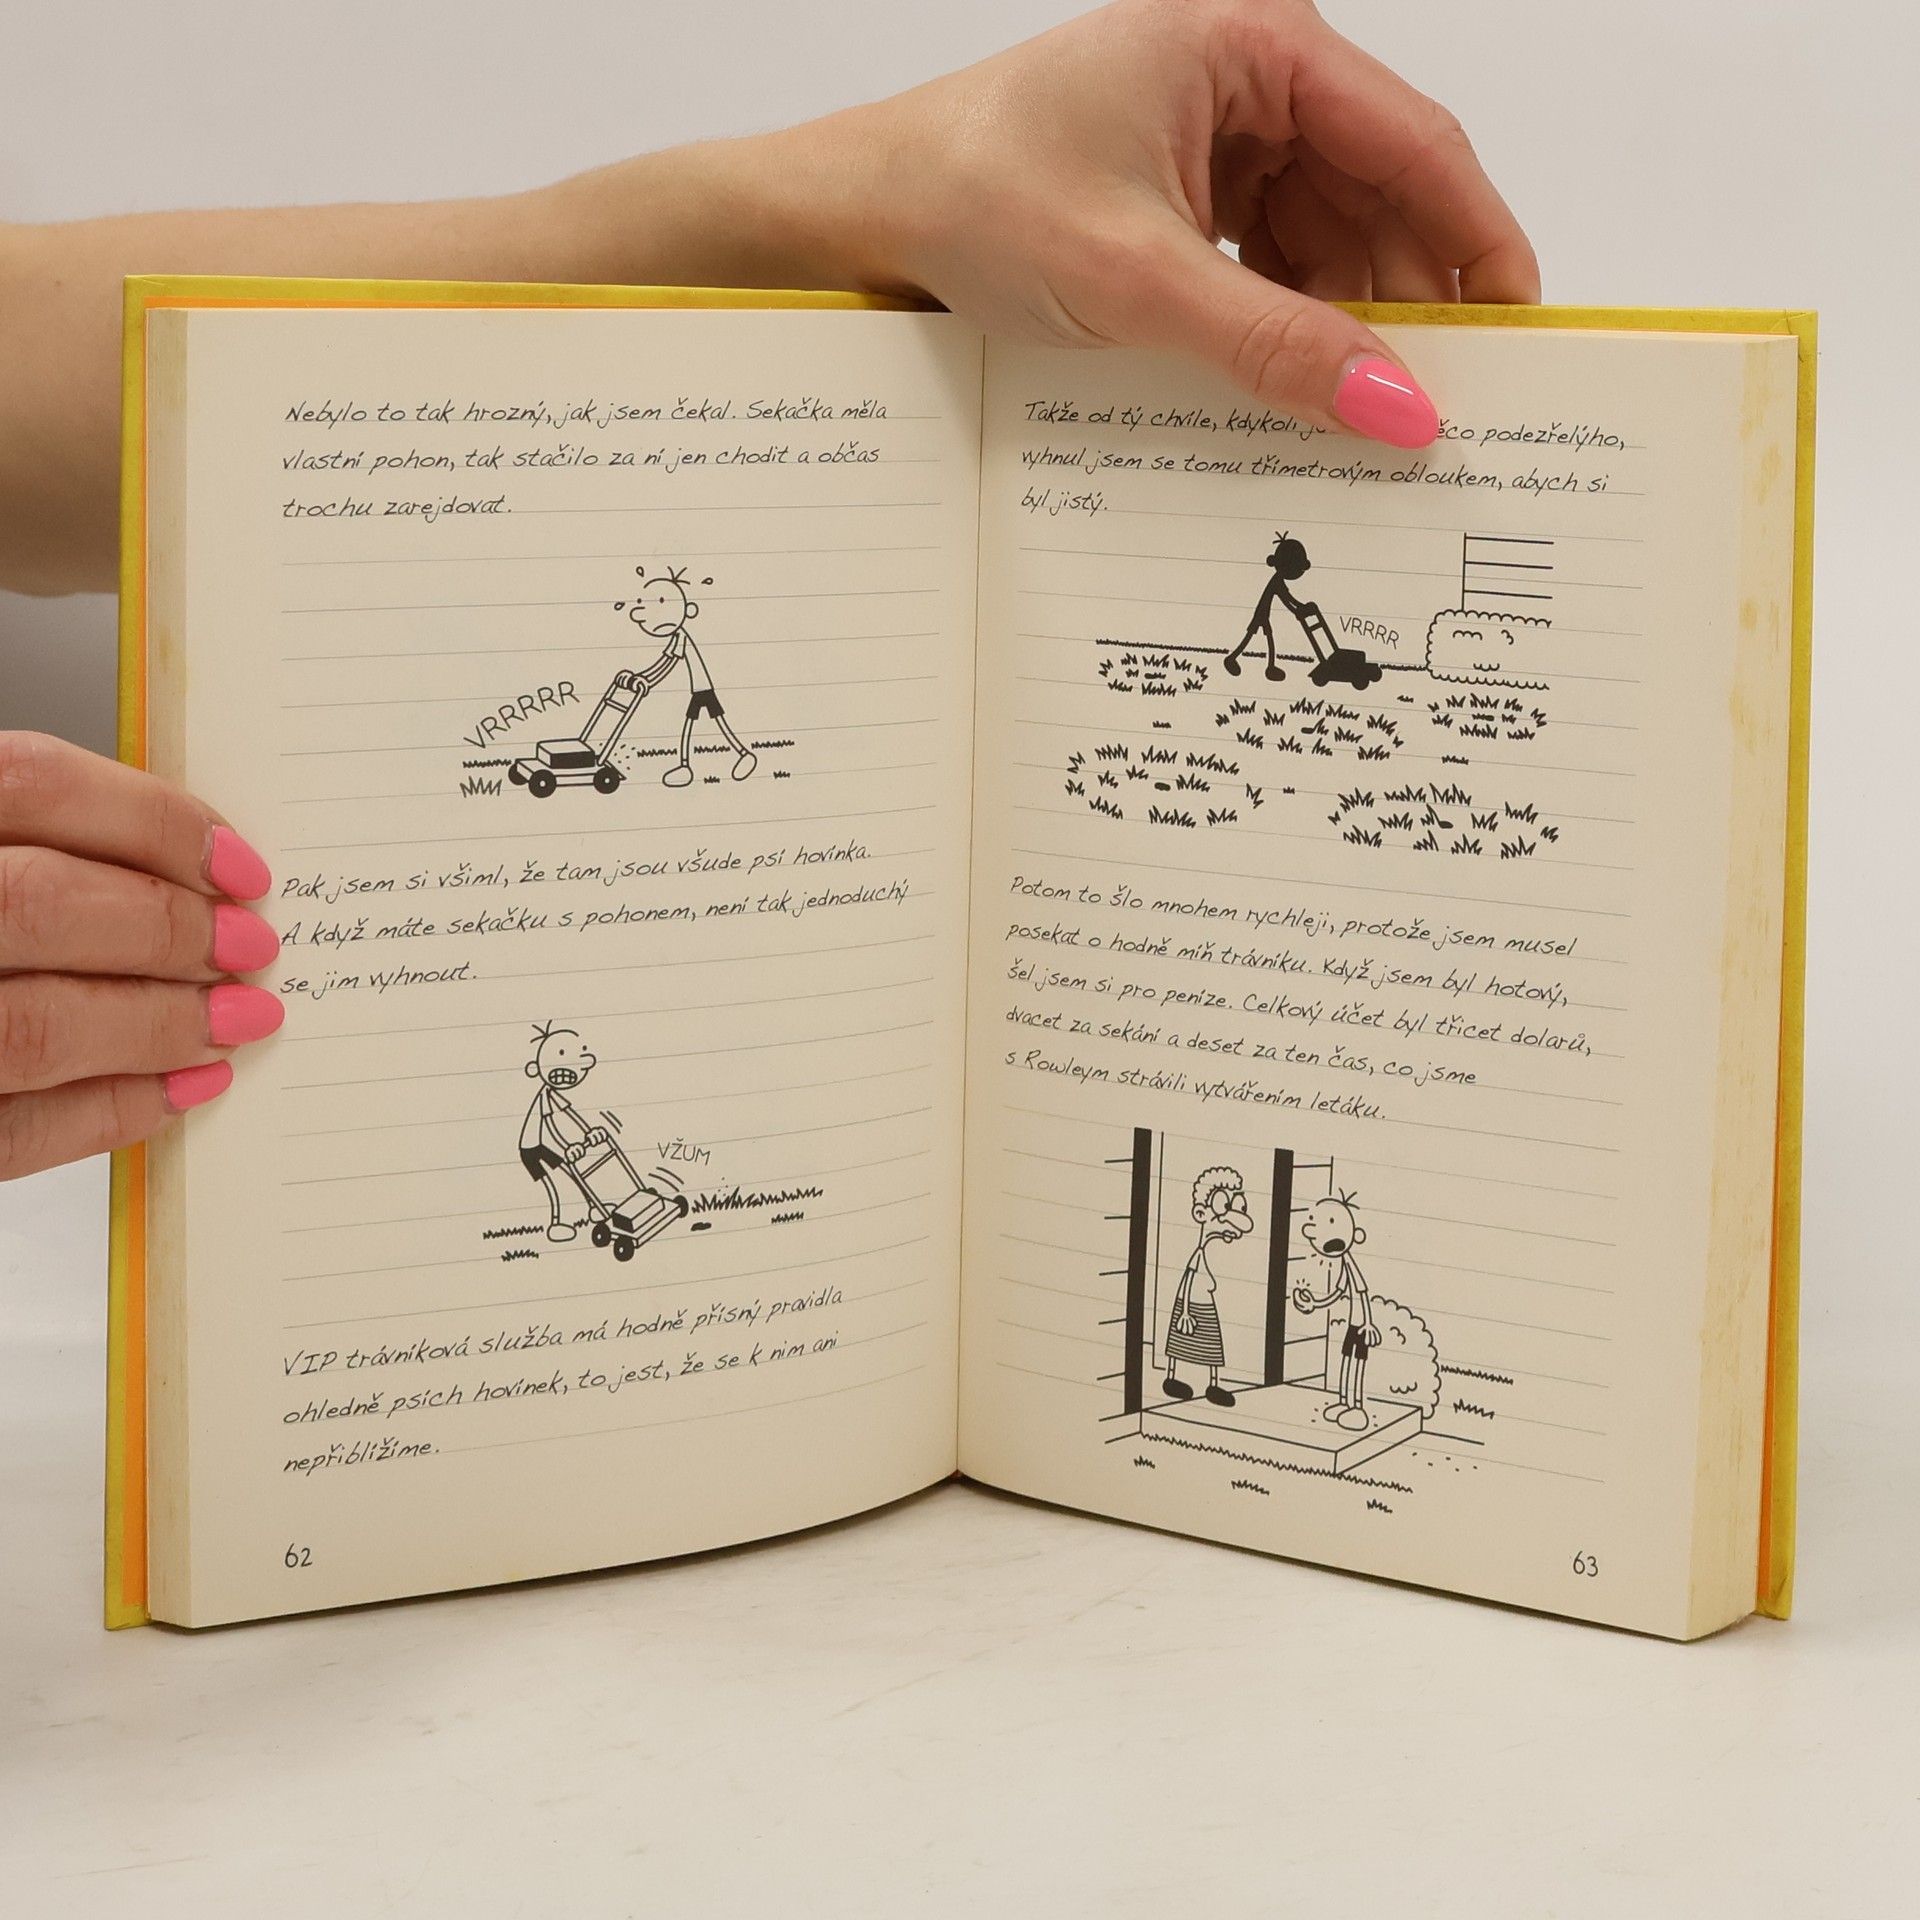 Nebylo to tak hrozný, jak jsem čekal. Sekačka měla
vlastní pohon, tak stačilo za ní jen chodit a občas
trochu zarejdovat.
VRRRRR
Pak jsem si všiml, že tam jsou všude psí hovínka.
A když máte sekačku s pohonem, není tak jednoduchý
se jim vyhnout.
VŽUM
VIP trávníková služba má hodně přísný pravidla
ohledně psích hovínek, to jest, že se k nim ani
nepřiblížíme.
62
Takže od tý chvíle, kdykoli podezřelýho,
vyhnul jsem se tomu třímetrovým obloukem, abych si
byl jistý.
VRRRR
Potom to šlo mnohem rychleji, protože jsem musel
posekat o hodně míň trávníku. Když jsem byl hotový,
šel jsem si pro peníze. Celkový účet byl třicet dolarů,
dvacet za sekání a deset za ten čas, co jsme
s Rowleym strávili vytvářením letáku.
63